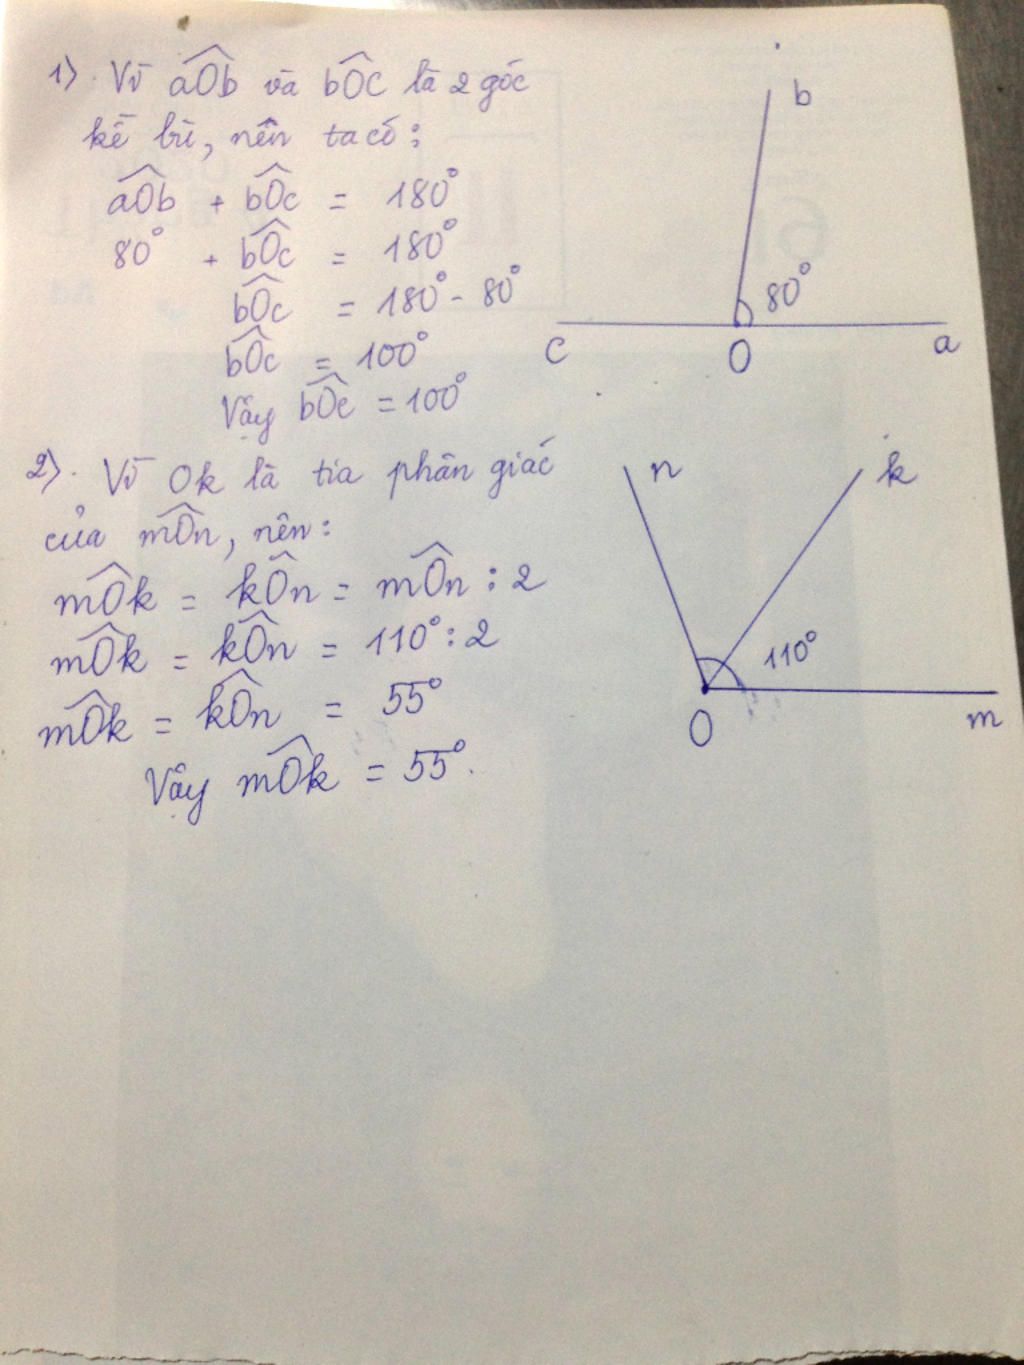 1) Vì aOb và bOc là 2 góc
kề bù, nên ta có:
aOb + bOc = 180°
80° + bOc = 180°
bOc = 180° - 80°
bOc = 100°
Vậy bOc = 100°
b
80°
c O a
2) Vì Ok là tia phân giác
của mOn, nên:
mOk = kOn = mOn : 2
mOk = kOn = 110° : 2
mOk = kOn = 55°
Vậy mOk = 55°.
n k
110°
O m